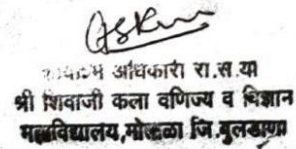 अधिकारी रा.से.यो
श्री शिवाजी कला वणिज्य व विज्ञान
महाविद्यालय,मोताळा जि.बुलडाणा